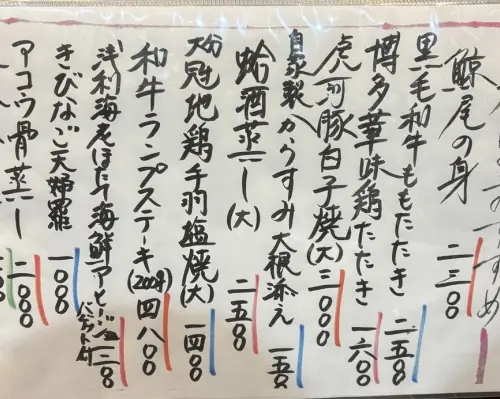 のおすすめ
鯨尾の身 二三〇〇
黒毛和牛ももたたき 二五〇〇
博多華味鶏たたき 一六〇〇
虎河豚白子焼(大) 三〇〇〇
自家製からすみ大根添え 一五〇〇
蛤酒蒸し(大) 二五〇〇
大分冠地鶏手羽塩焼(大) 一四〇〇
和牛ランプステーキ(200g) 四八〇〇
浅利海老ほたて海鮮アヒージョ バゲット付 二二〇〇
きびなご天婦羅 一〇〇〇
アコウ骨蒸し 二〇〇〇